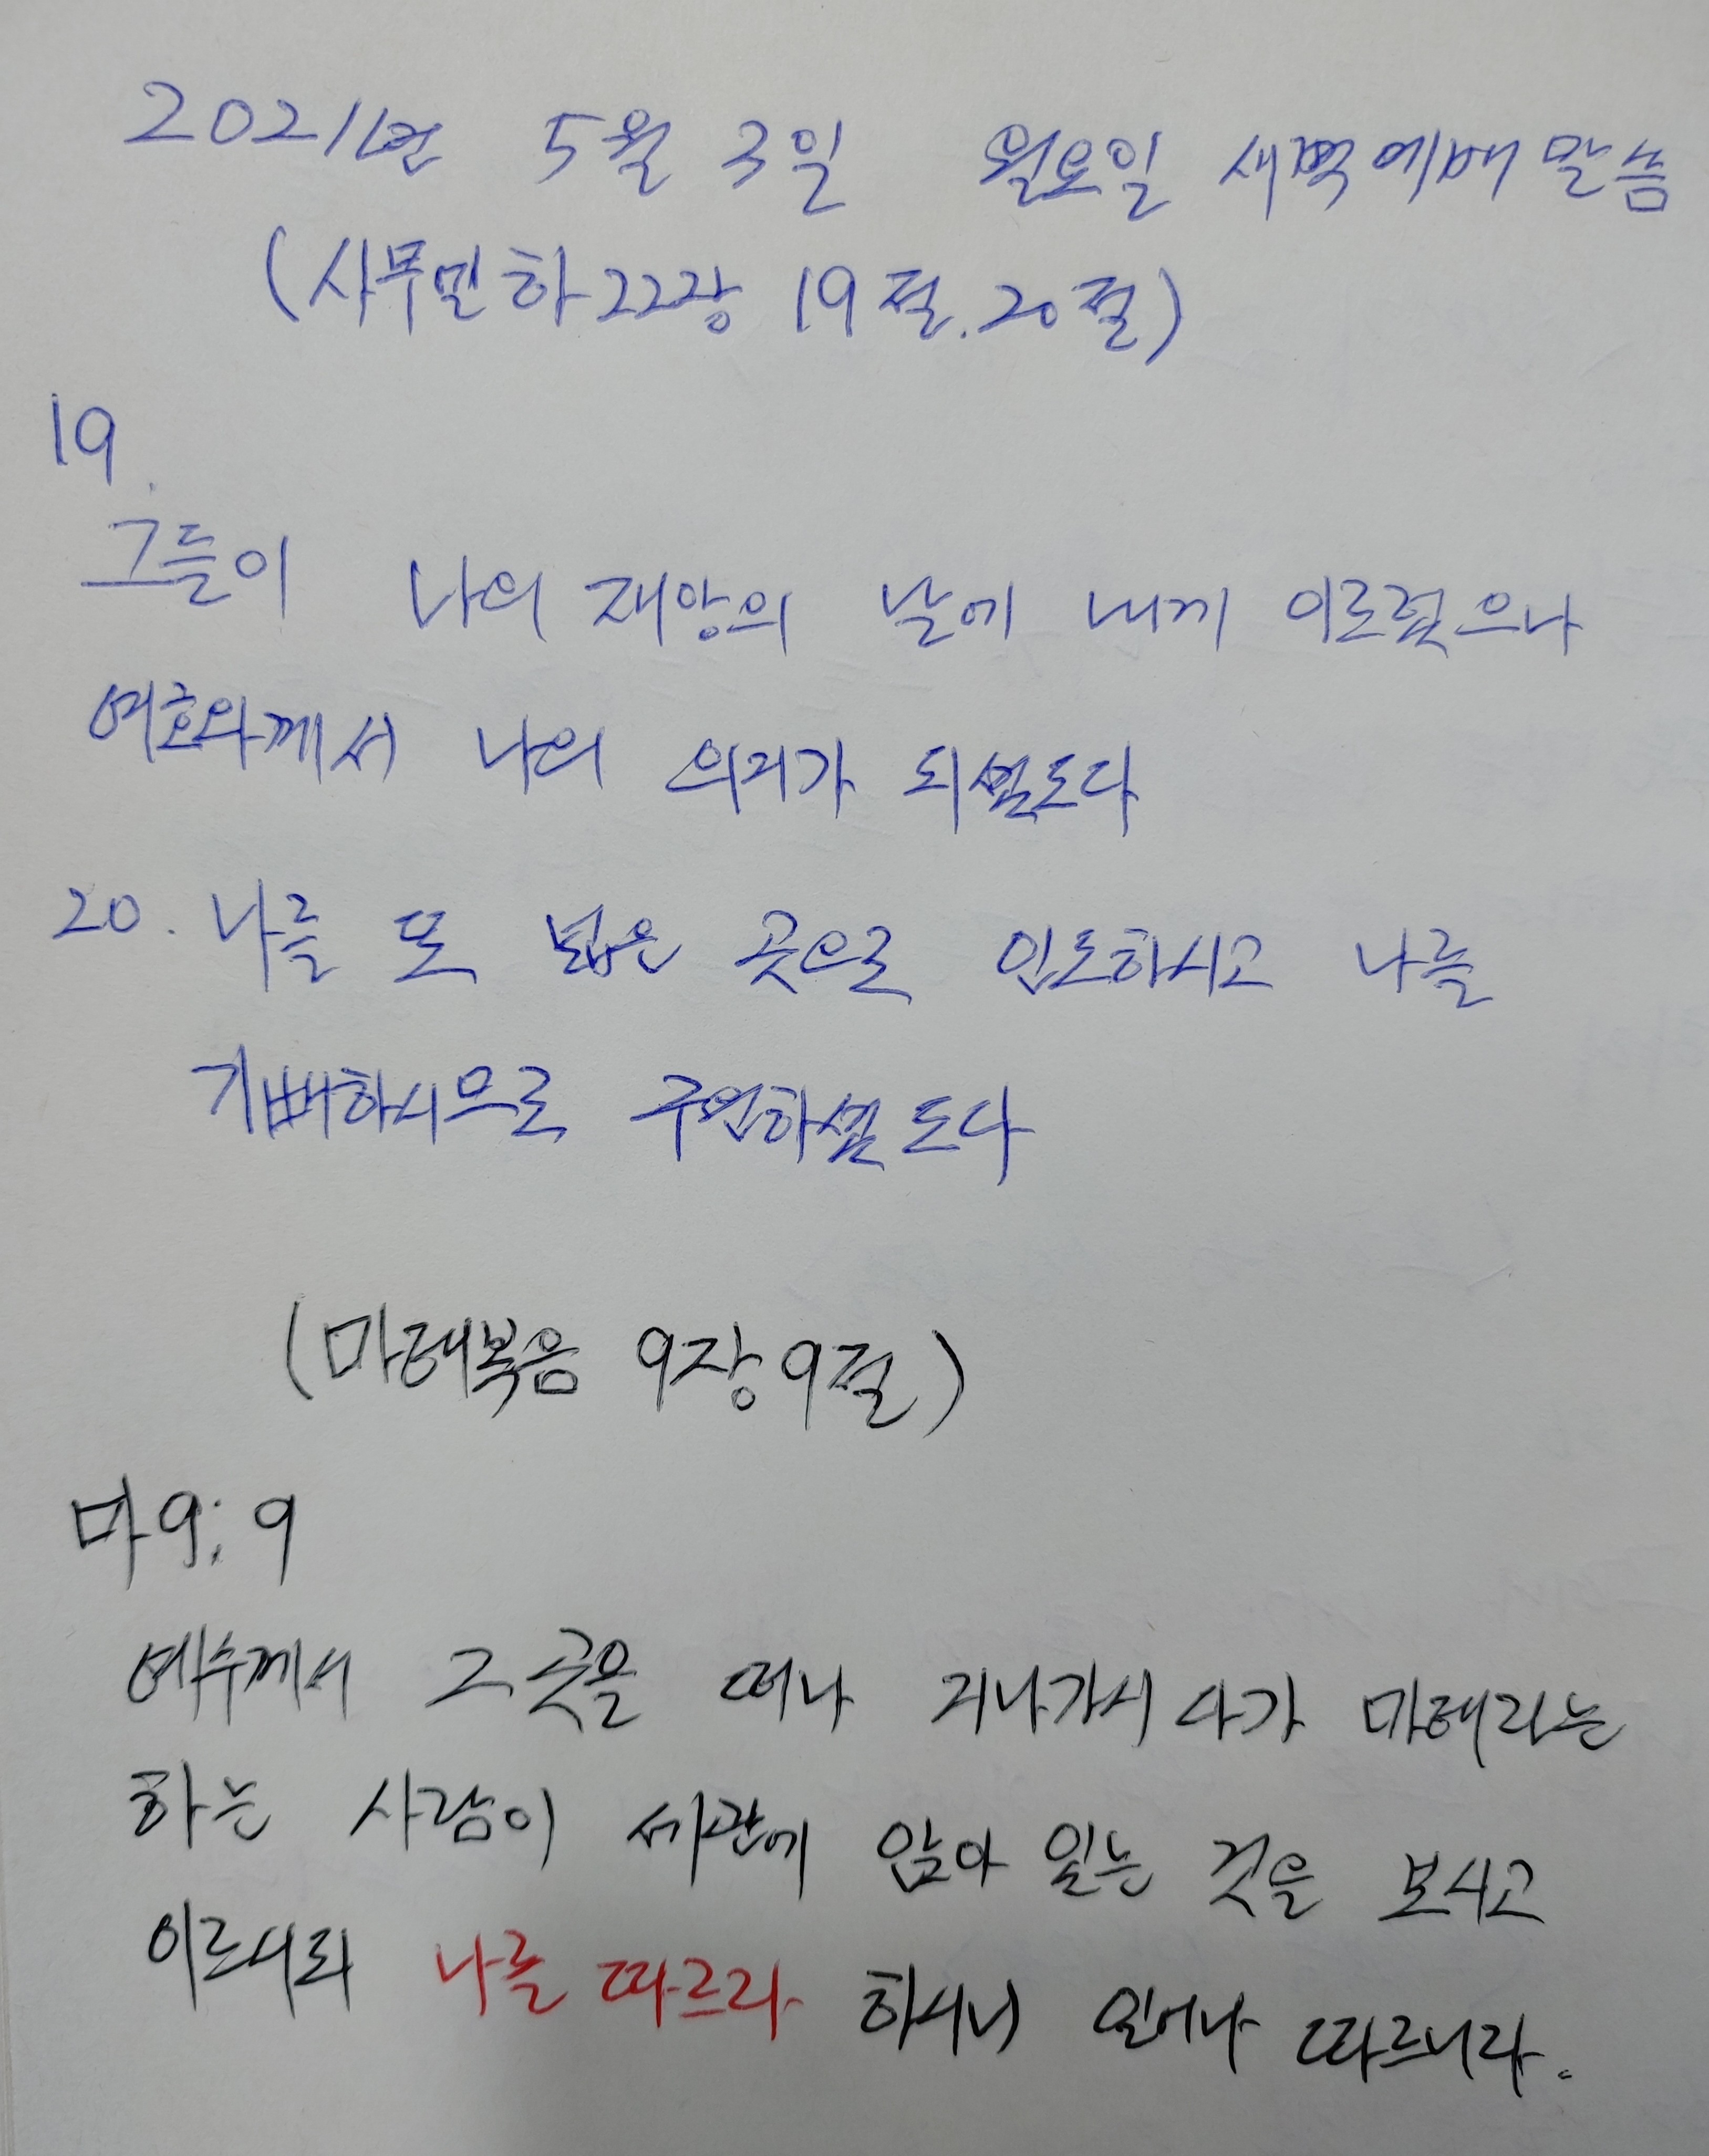 2021년 5월 3일 월요일 새벽예배 말씀
(사무엘하 22장 19절. 20절)
19.
그들이 나의 재앙의 날에 내게 이르렀으나
여호와께서 나의 의지가 되셨도다
20. 나를 또 넓은 곳으로 인도하시고 나를
기뻐하시므로 구원하셨도다
(마태복음 9장 9절)
마9:9
예수께서 그 곳을 떠나 지나가시다가 마태라는
하는 사람이 세관에 앉아 있는 것을 보시고
이르시되 나를 따르라 하시니 일어나 따르니라.